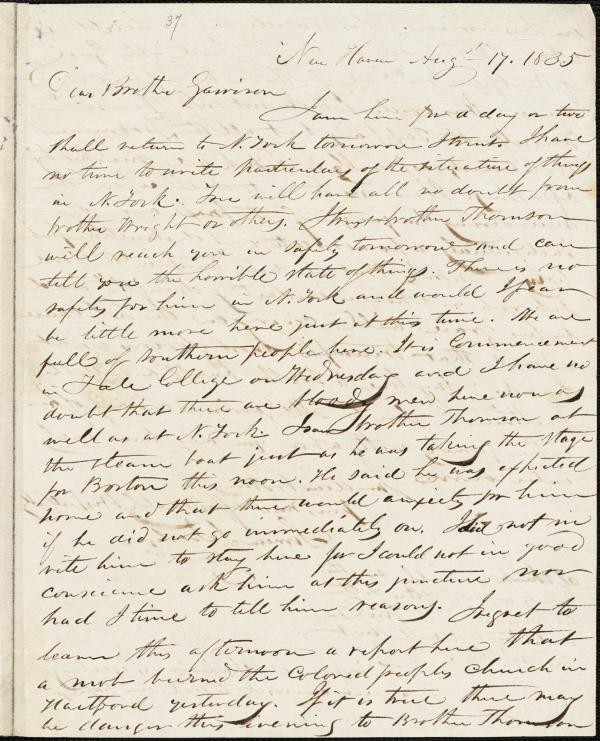 37
New Haven Augt 17. 1835
Dear Brother Garrison
I am here for a day or two
shall return to N. York tomorrow I trust. I have
no time to write particulars of the situation of things
in N York. You will have all no doubt from
brother Wright or others. I trust brother Thomson
will reach you in safety tomorrow and can
tell you the horrible state of things. There is no
safety for him in N. York and would I fear
be little more here just at this time. We are
full of southern people here. It is Commencement
in Yale College on Wednesday and I have no
doubt that there are bloody men here now as
well as at N. York I saw brother Thomson at
the steam boat just as he was taking the stage
for Boston this noon. He said he was expected
home and that there would anxiety for him
if he did not go immediately on. I did not in
vite him to stay here for I could not in good
conscience ask him at this juncture nor
had I time to tell him reasons. I regret to
learn this afternoon a report here that
a mob burned the Colored peoples Church in
Hartford yesterday. If it is true there may
be danger this evening to Brother Thomson